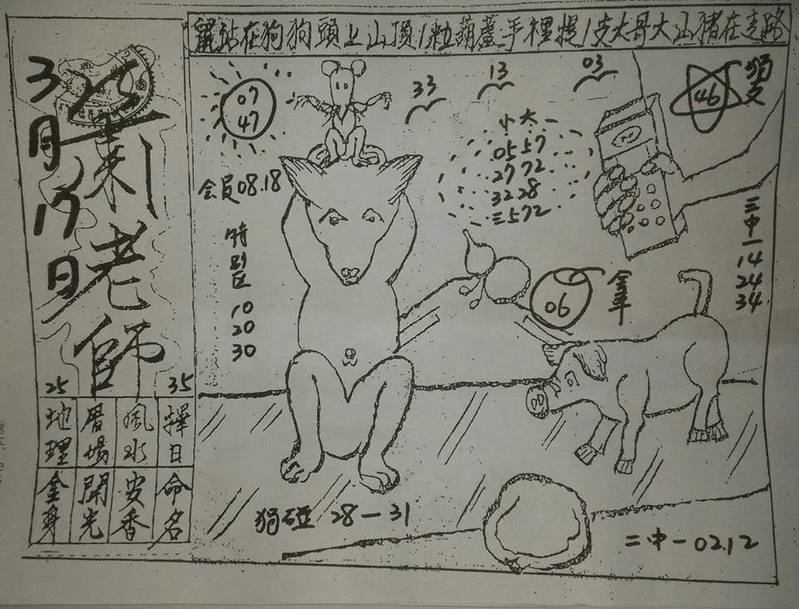 鼠站在狗狗頭上山頂1粒葫蘆手裡提1支大哥大山豬在走路
3月17日
葉老師
25 35
擇日 風水 厝場 地理
命名 安香 開光 金身
07
47
33
13
03
46
獨支
会員08.18
小大一
0557
2772
3228
三572
特別区
10
20
30
三中一
14
24
34
06
全車
獨碰 28-31
二中一02.12